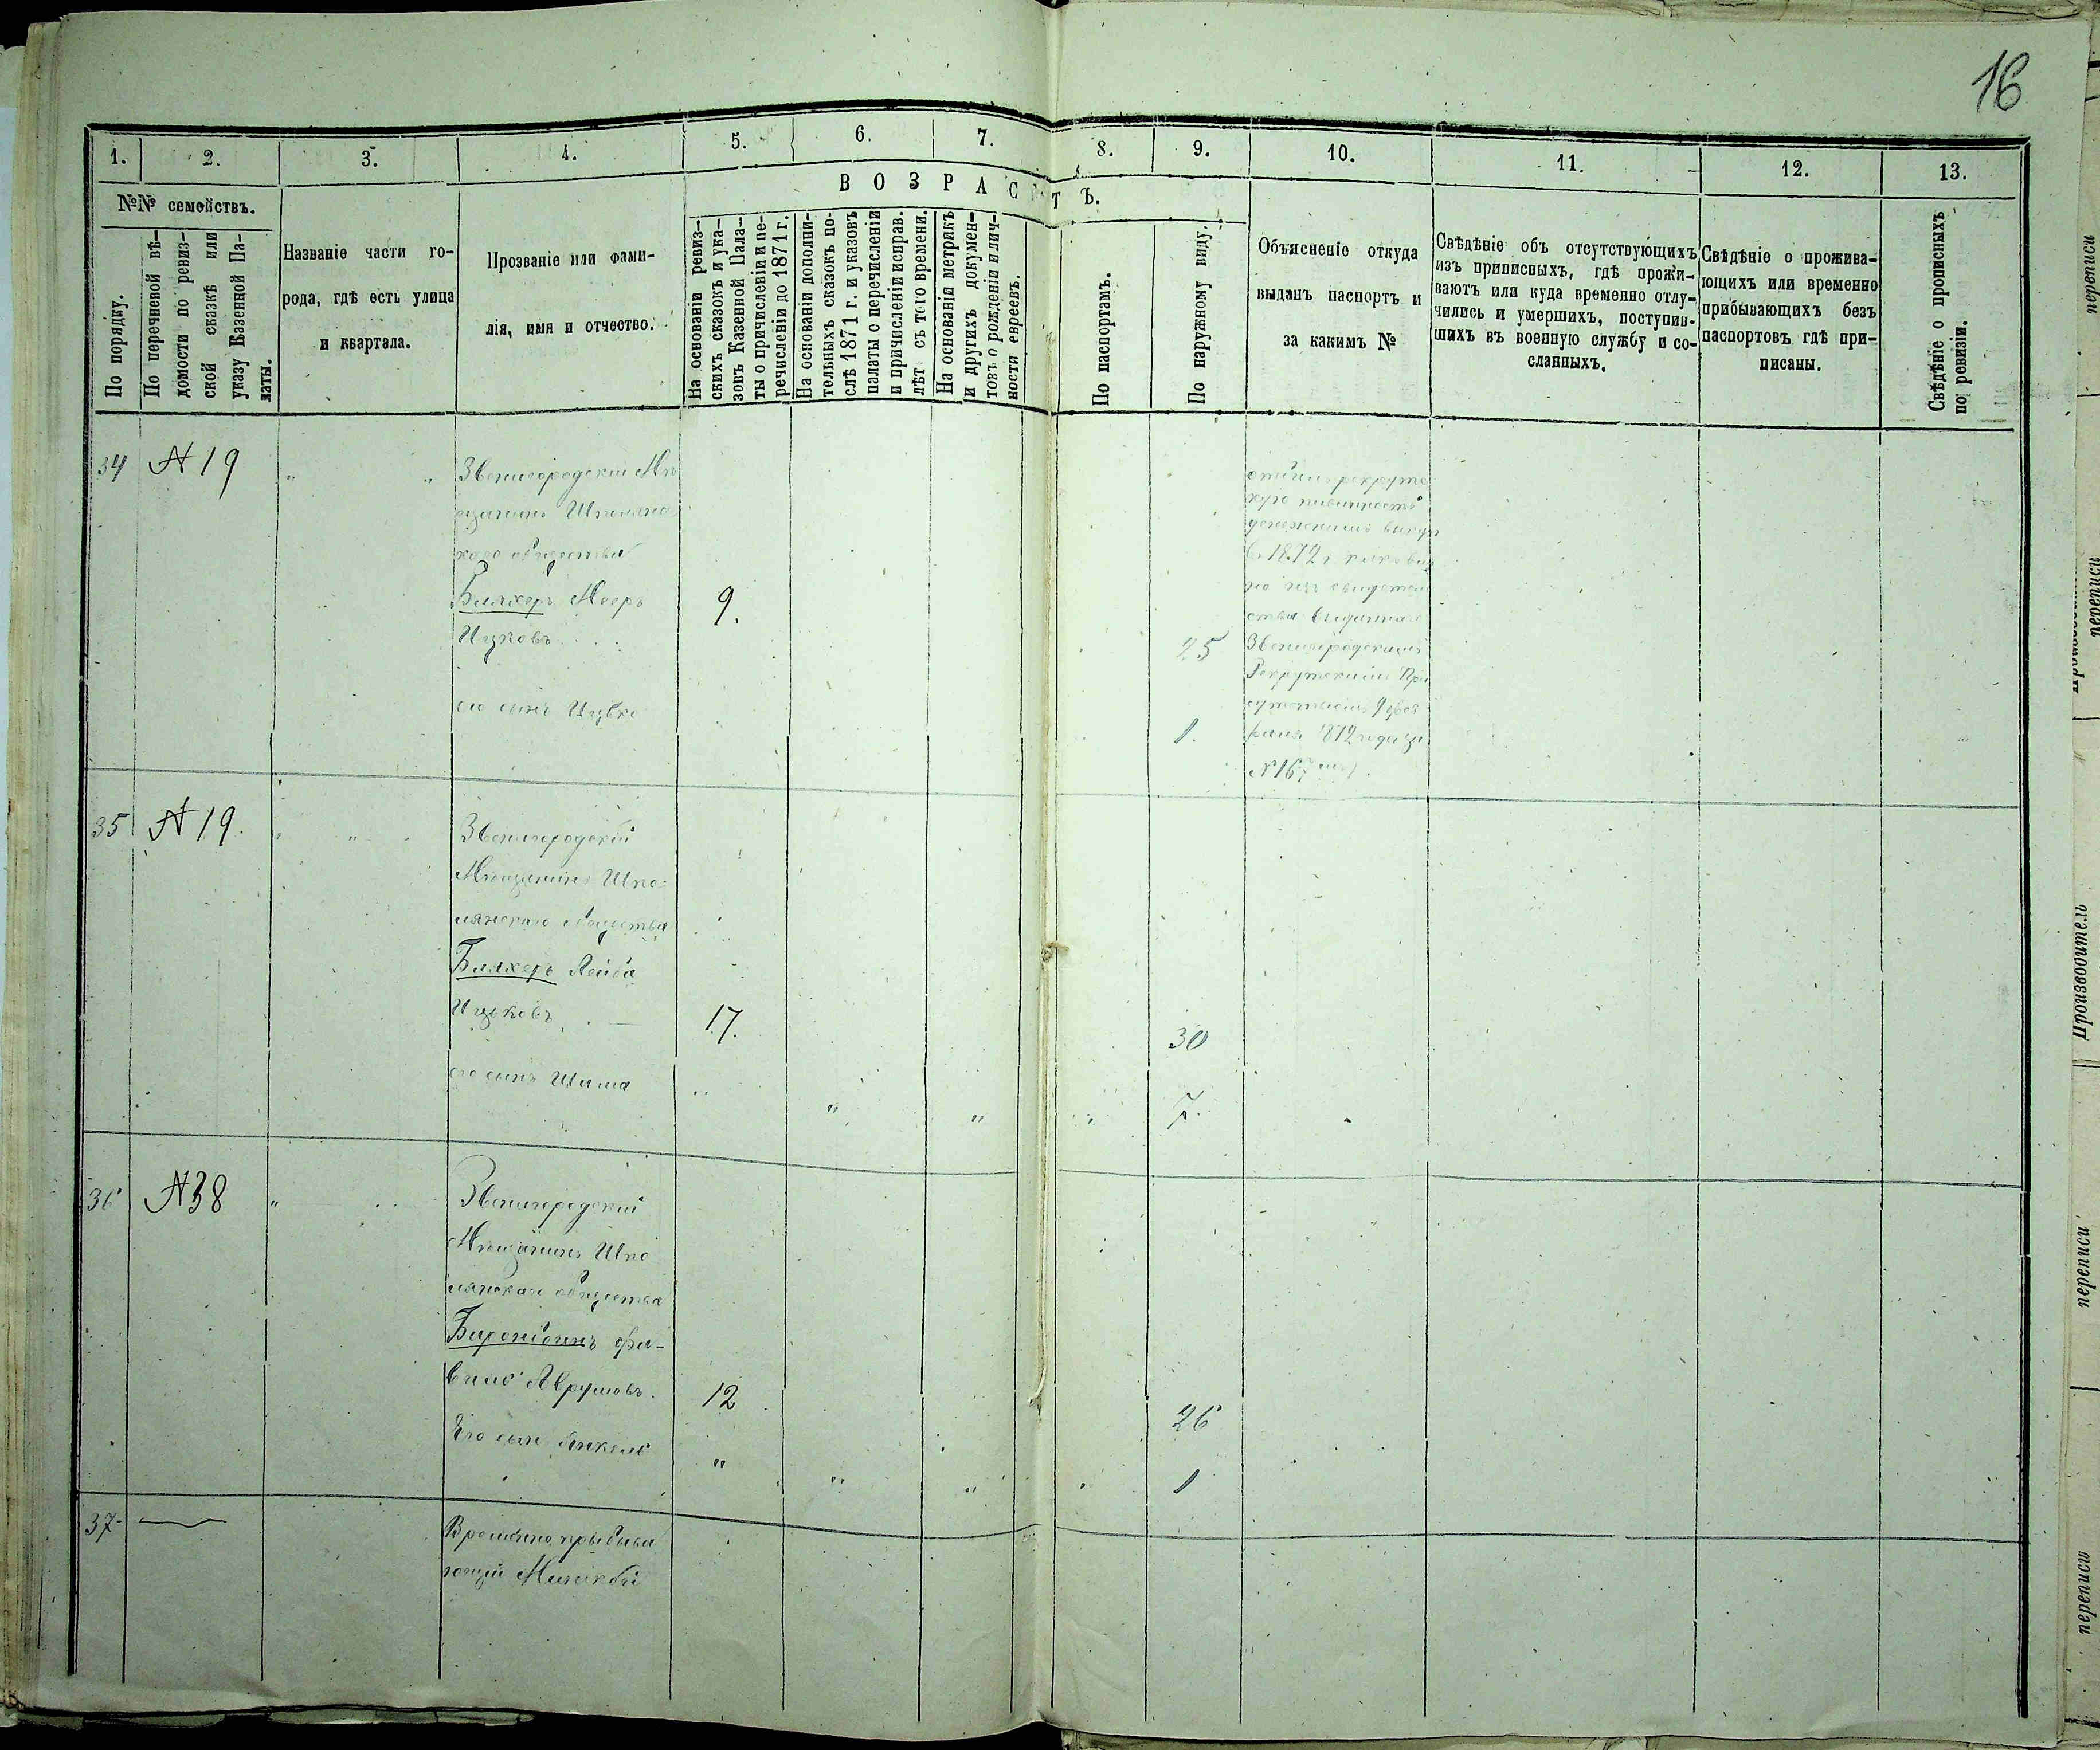 16
1. 2. 3. 4. 5. 6. 7. 8. 9. 10. 11. 12. 13.
№№ семействъ.
ВОЗРАСТЪ.
По порядку.
По перечневой вѣ-
домости по ревиз-
ской сказкѣ или
указу Казенной Па-
латы.
Названіе части го-
рода, гдѣ есть улица
и квартала.
Прозваніе или фами-
лія, имя и отчество.
На основаніи ревиз-
скихъ сказокъ и ука-
зовъ Казенной Пала-
ты о причисленіи и пе-
речисленіи до 1871 г.
На основаніи дополни-
тельныхъ сказокъ по-
слѣ 1871 г. и указовъ
палаты о перечисленіи
и причисленіи исправ.
лѣт съ того времени.
На основаніи метрикъ
и другихъ докумен-
товъ о рожденіи и лич-
ности евреевъ.
По паспортамъ.
По наружному виду.
Объясненіе откуда
выданъ паспортъ и
за какимъ №
Свѣдѣніе объ отсутствующихъ
изъ приписныхъ, гдѣ прожи-
ваютъ или куда временно отлу-
чились и умершихъ, поступив-
шихъ въ военную службу и со-
сланныхъ.
Свѣдѣніе о прожива-
ющихъ или временно
прибывающихъ безъ
паспортовъ гдѣ при-
писаны.
Свѣдѣніе о прописныхъ
по ревизіи.
34 № 19 " " Звенигородскій Мѣ
щанинъ Шполянс
каго общества
Бляхеръ Мееръ 9.
Ицковъ 25
его сынъ Ицько 1.
рекрутс
кую повинность
денежнымъ выкуп
въ 1872 г
свидетель
ства выданнаго
Звенигородскимъ
Рекрутскимъ При
сутствіемъ 9 фев
раля 1872 года за
№ 167
35 № 19. " Звенигородскій
Мѣщанинъ Шпо
лянскаго общества
Бляхеръ Лейба
Ицковъ 17. 30
его сынъ Шлима " " " " 7.
36 № 38 " Звенигородскій
Мѣщанинъ Шпо
лянскаго общества
фа-
Аврумовъ. 12 26
Его сынъ Янкель " " " " 1
37 Временно прибыва
ющій
переписи
переписи
Производитель
переписи
переписи